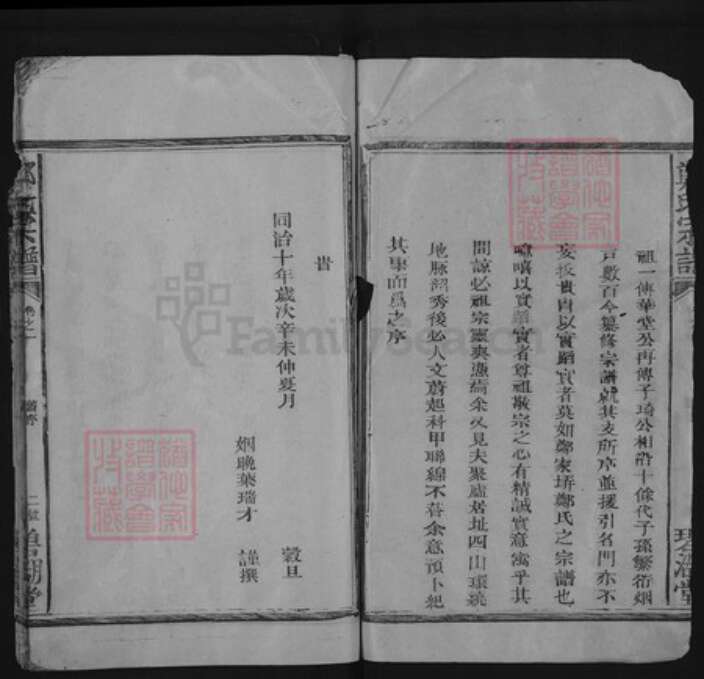 鄭氏宗譜
祖一傳華堂公再傳子琦公相沿十餘代子孫繁衍烟
戸數百今纂修宗譜就其支所序並援引名門亦不
妄扳貴胄以實蹈實者莫如鄭家塝鄭氏之宗譜也
嘻以實蹈實者尊祖敬宗之心有精誠實意寓乎其
間諒必祖宗靈爽憑焉余又見夫聚廬居址四山環繞
地脉鍾秀後必人文蔚起科甲聯綿不替余意預卜紀
其事而爲之序
旹
同治十年歲次辛未仲夏月
穀旦
姻晚葉瑞才
謹撰
氏宗譜
卷之一
FamilySearch